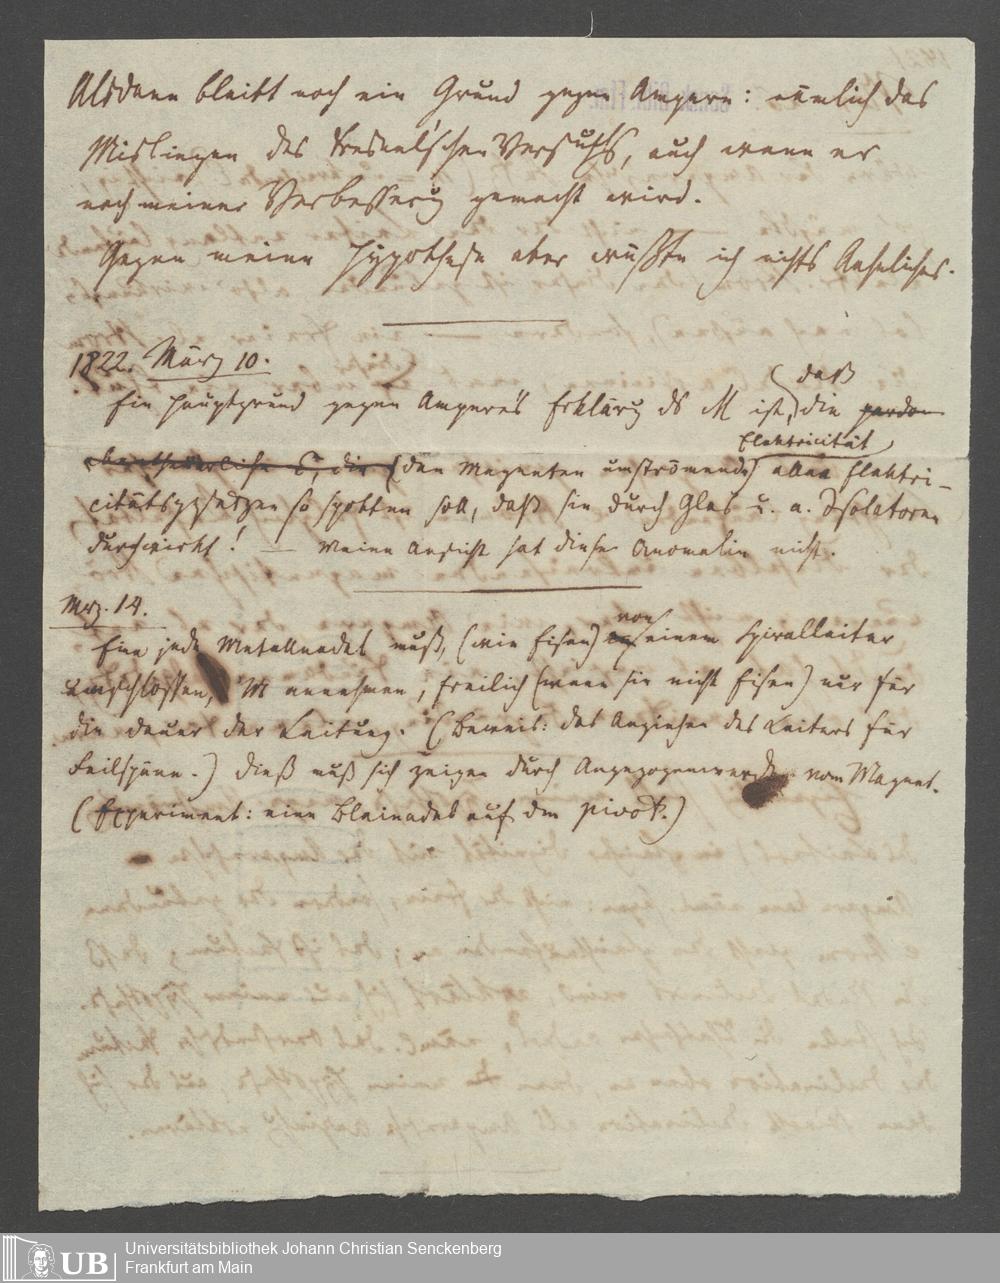 Alsdann bleibt noch ein Grund gegen Ampere: nämlich das
Mislingen des Fresnel'schen Versuchs, auch wenn er
nach meiner Verbesserung gemacht wird.
Gegen meine Hypothese aber wüßte ich nichts Aehnliches.
1822. März 10.
Ein Hauptgrund gegen Ampere's Erklärung ds M ist, daß die
(den Magneten umströmende) Elektricität allen Elektri-
citätsgesetzen so spotten soll, daß sie durch Glas u. a. Isolatoren
durchwirkt! — Meine Ansicht hat diese Anomalie nicht.
Mrz. 14.
Eine jede Metallnadel muß, (wie Eisen) von einem Spiralleiter
umschlossen, M annehmen, freilich (wenn sie nicht Eisen) nur für
die Dauer der Leitung. (Beweis: das Anziehen des Leiters für
Feilspäne.) Dieß muß sich zeigen durch Angezogenwerden vom Magnet.
(Experiment: eine Bleinadel auf dem pivot.)
UB
Universitätsbibliothek Johann Christian Senckenberg
Frankfurt am Main